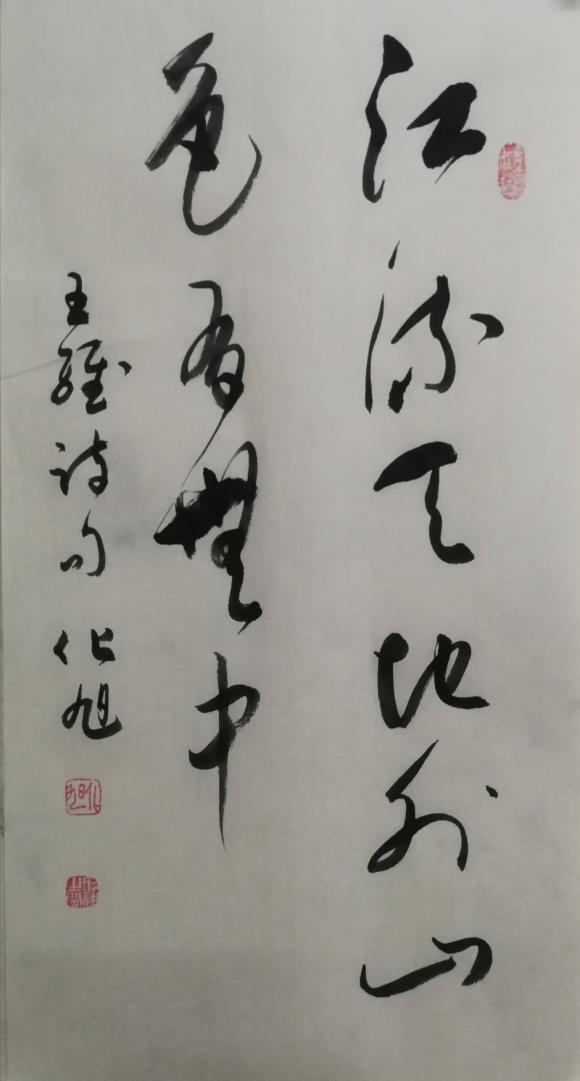 江流天地外山
色有無中
王維诗句 化旭